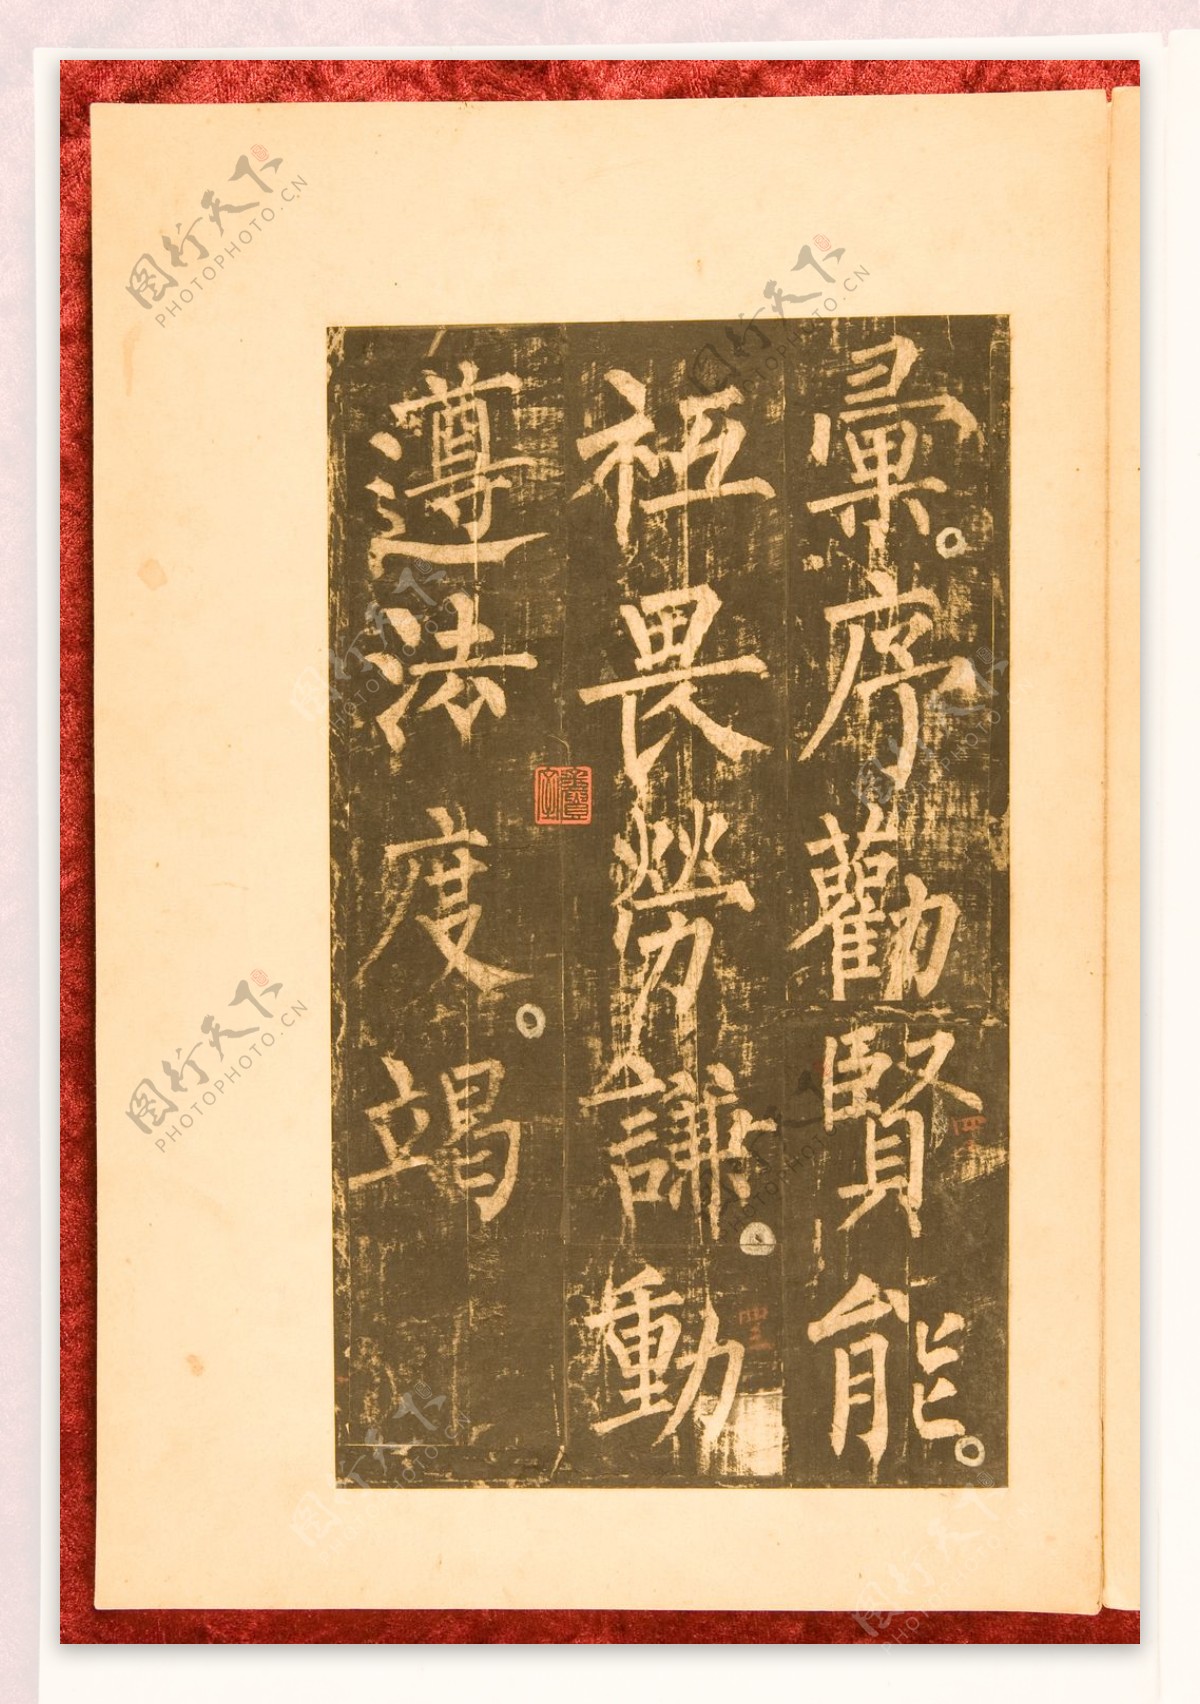 彚。序勸賢能。
祗畏勞謙。動
遵法度。竭
图行天下
PHOTOPHOTO.CN